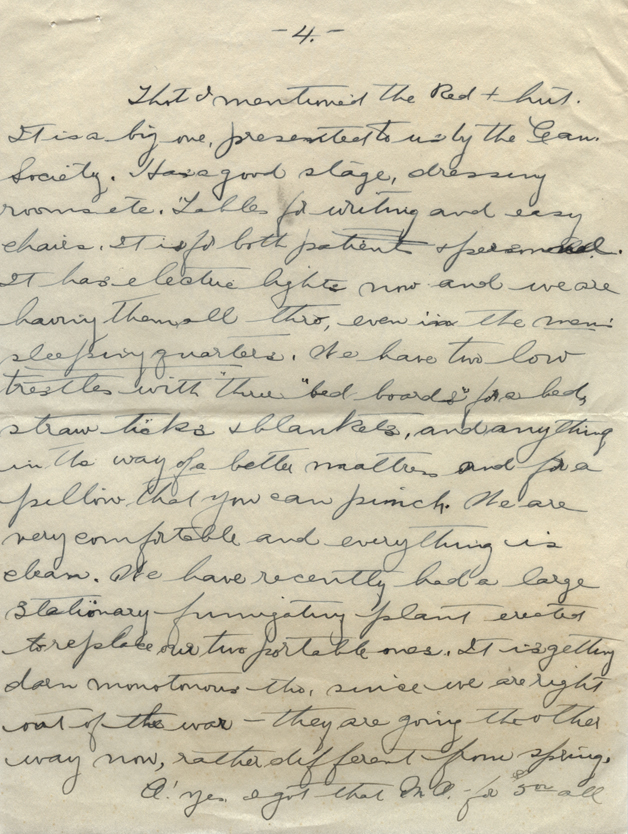 -4.-
That I mentioned the Red + hut.
It is a big one, presented to us by the Can.
Society. Has a good stage, dressing
rooms etc. Tables for writing and easy
chairs. It is for both patient & personnel.
It has electric lights now and we are
having them all thro, even in the men's
sleeping quarters. We have two low
trestles with "three "bed boards" for a bed,
straw ticks & blankets, and anything
in the way of a better mattress and for a
pillow that you can pinch. We are
very comfortable and everything is
clean. We have recently had a large
stationary fumigating plant erected
to replace our two portable ones. It is getting
darn monotonous tho, since we are right
out of the war - they are going the other
way now, rather different from spring.
A! yes I got that M.O. for $5.00 all